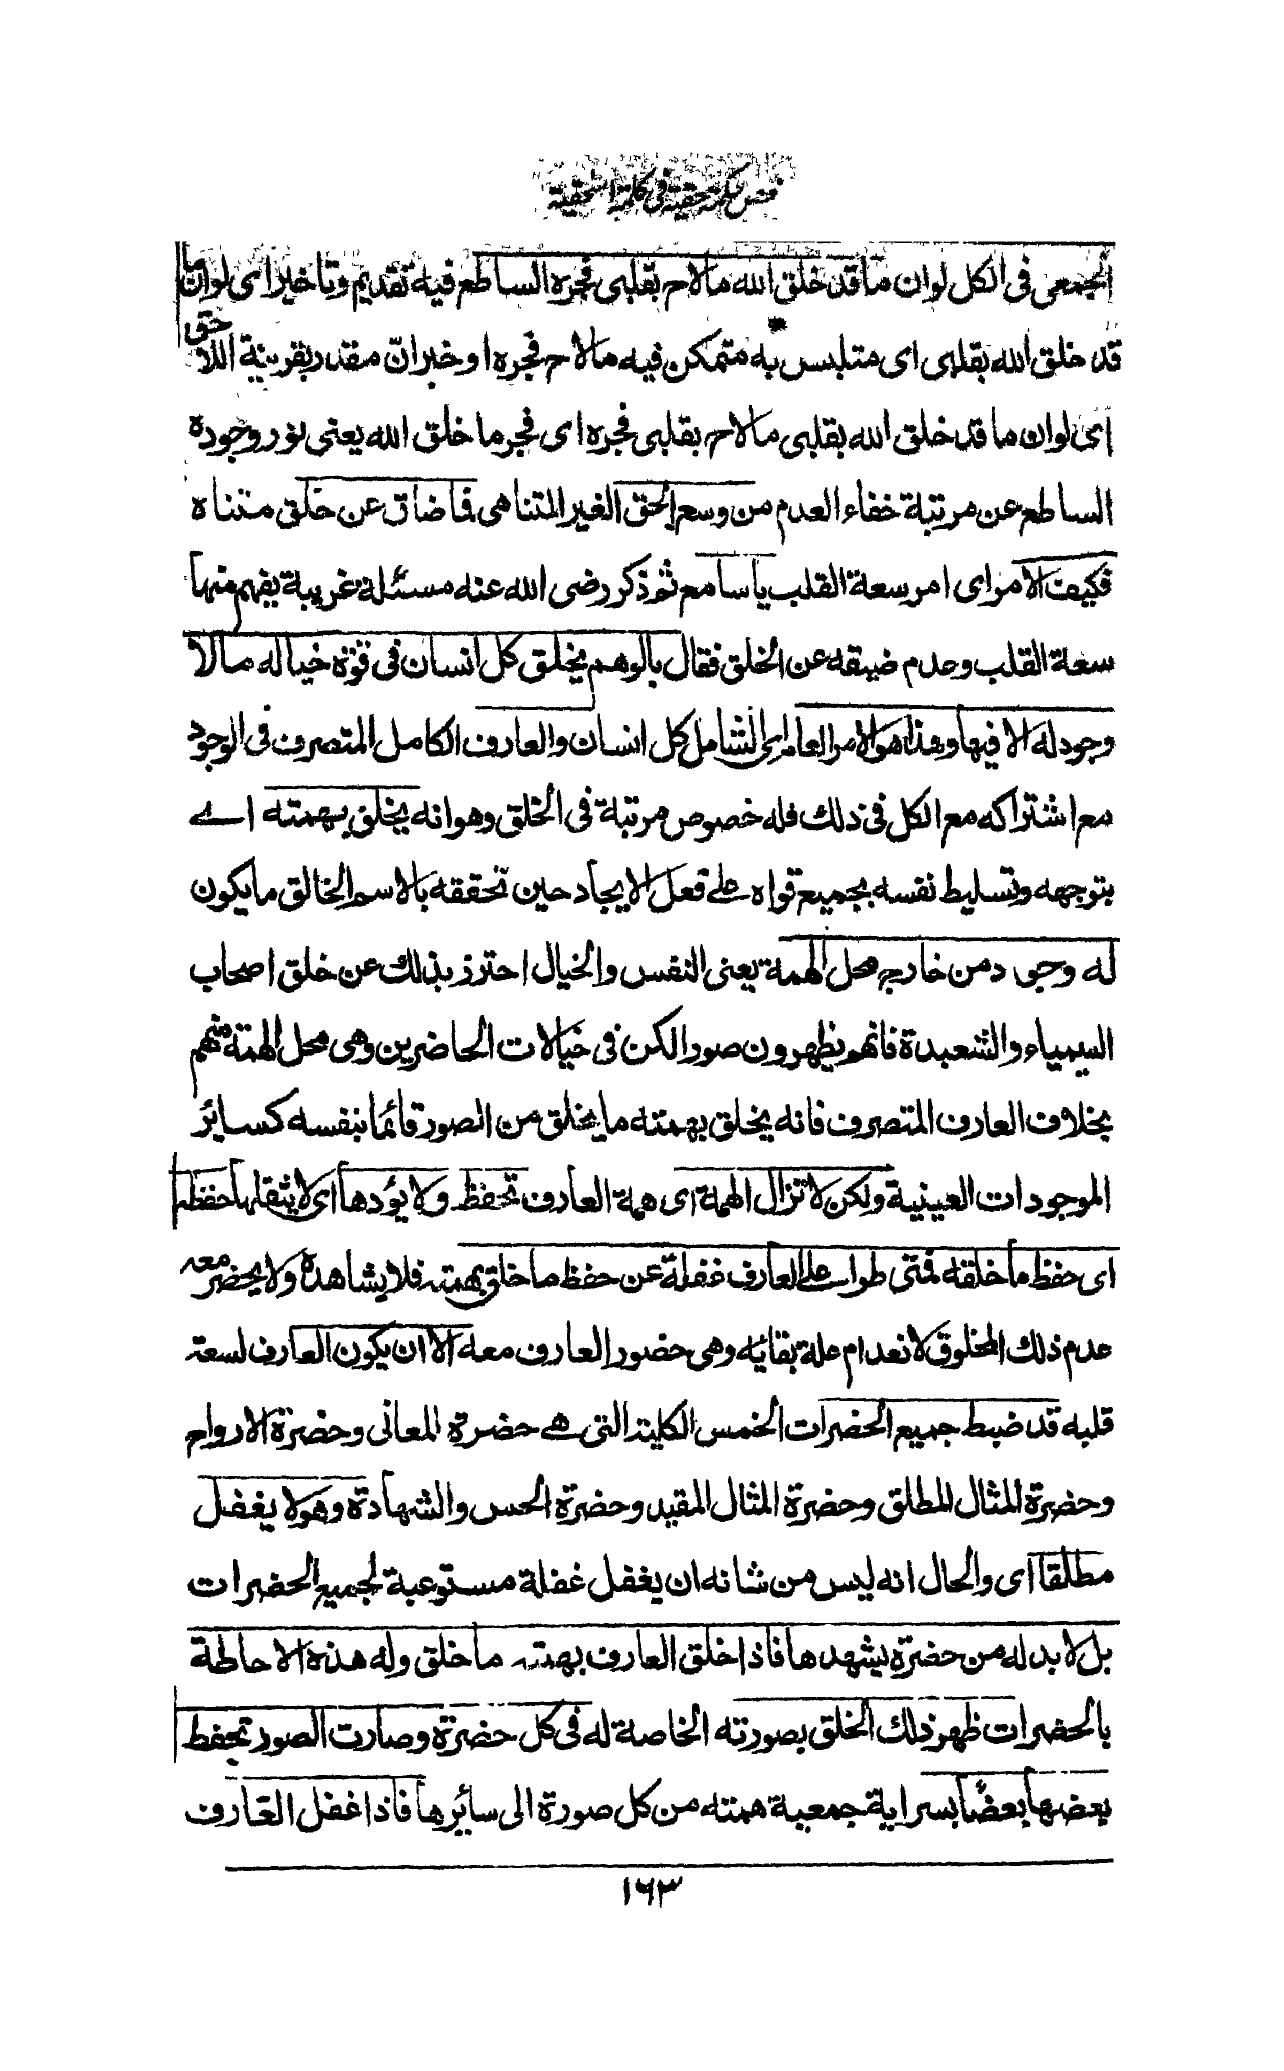 فص حكمة حقية فى كلمة اسحقية
الجمعى فى الكل لوان ما قد خلق الله مالاح بقلبى فجره الساطع فيه تقديم وتاخير اى لوان ما
قد خلق الله بقلبى اى متلبس به متمكن فيه مالاح فجره او خبر انّ مقدر بقرينة اللاحق
اى لوان ما قد خلق الله بقلبى مالاح بقلبى فجره اى فجر ما خلق الله يعنى نور وجوده
الساطع عن مرتبة خفاء العدم من وسع الحق الغير المتناهى فما ضاق عن خلق متناه
فكيف الامر اى امر سعة القلب يا سامع ثم ذكر رضى الله عنه مسئلة غريبة يفهم منها
سعة القلب وعدم ضيقه عن الخلق فقال بالوهم يخلق كل انسان فى قوة خياله مالا
وجود له الا فيها وهذا هو الامر العام اى الشامل كل انسان والعارف الكامل المتصرف فى الوجود
مع اشتراكه مع الكل فى ذلك فله خصوص مرتبة فى الخلق وهو انه يخلق بهمته اے
بتوجهه وتسليط نفسه بجميع قواه على فعل الايجاد حين تحققه بالاسم الخالق ما يكون
له وجود من خارج محل الهمة يعنى النفس والخيال احترز بذلك عن خلق اصحاب
السيمياء والشعبدة فانهم يظهرون صورا لكن فى خيالات الحاضرين وهى محل الهمة منهم
بخلاف العارف المتصرف فانه يخلق بهمته ما يخلق من الصور قائما بنفسه كسائر
الموجودات العينية ولكن لا تزال الهمة اى همة العارف تحفظه ولا يؤدها اى لا يثقلها حفظه
اى حفظ ما خلقه فمتى طرأت على العارف غفلة عن حفظ ما خلق بهمته فلا يشاهده ولا يحضر معه
عدم ذلك المخلوق لانعدام علة بقائه وهى حضور العارف معه الا ان يكون العارف لسعة
قلبه قد ضبط جميع الحضرات الخمس الكلية التى هے حضرة المعانى وحضرة الارواح
وحضرة المثال المطلق وحضرة المثال المقيد وحضرة الحس والشهادة وهو لا يغفل
مطلقا اى والحال انه ليس من شانه ان يغفل غفلة مستوعبة لجميع الحضرات
بل لا بد له من حضرة يشهدها فاذا خلق العارف بهمته ما خلق وله هذه الاحاطة
بالحضرات ظهر ذلك الخلق بصورته الخاصة له فى كل حضرة وصارت الصور تحفظ
بعضها بعضًا بسراية جمعية همته من كل صورة الى سائرها فاذا غفل العارف
١٦٣